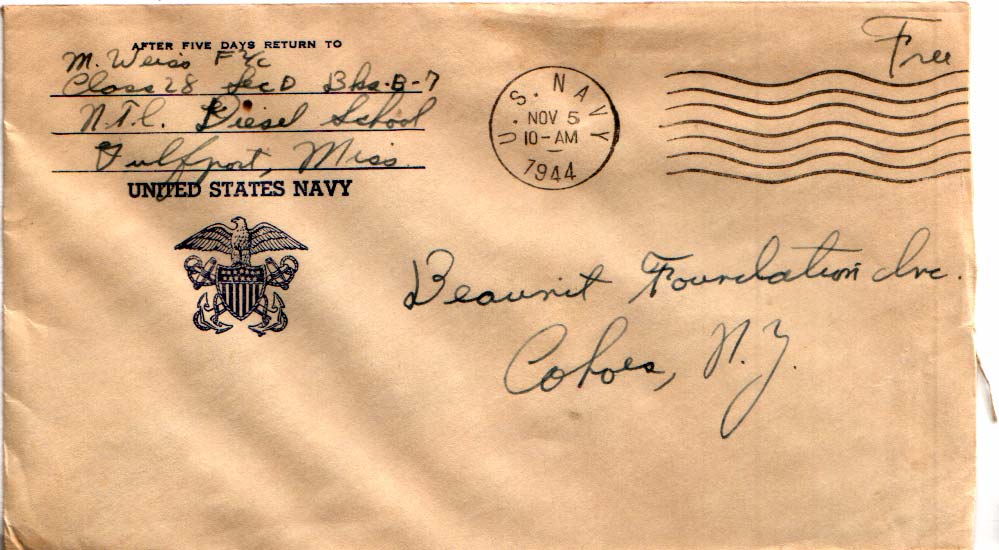 AFTER FIVE DAYS RETURN TO
M. Weiss F 2/c
Class 28 Sec D Bks. B-7
N.T.C. Diesel School
Gulfport, Miss.
UNITED STATES NAVY
U. S. NAVY
NOV 5
10-AM
1944
Free
Beaunit Foundation Inc.
Cohoes, N.Y.